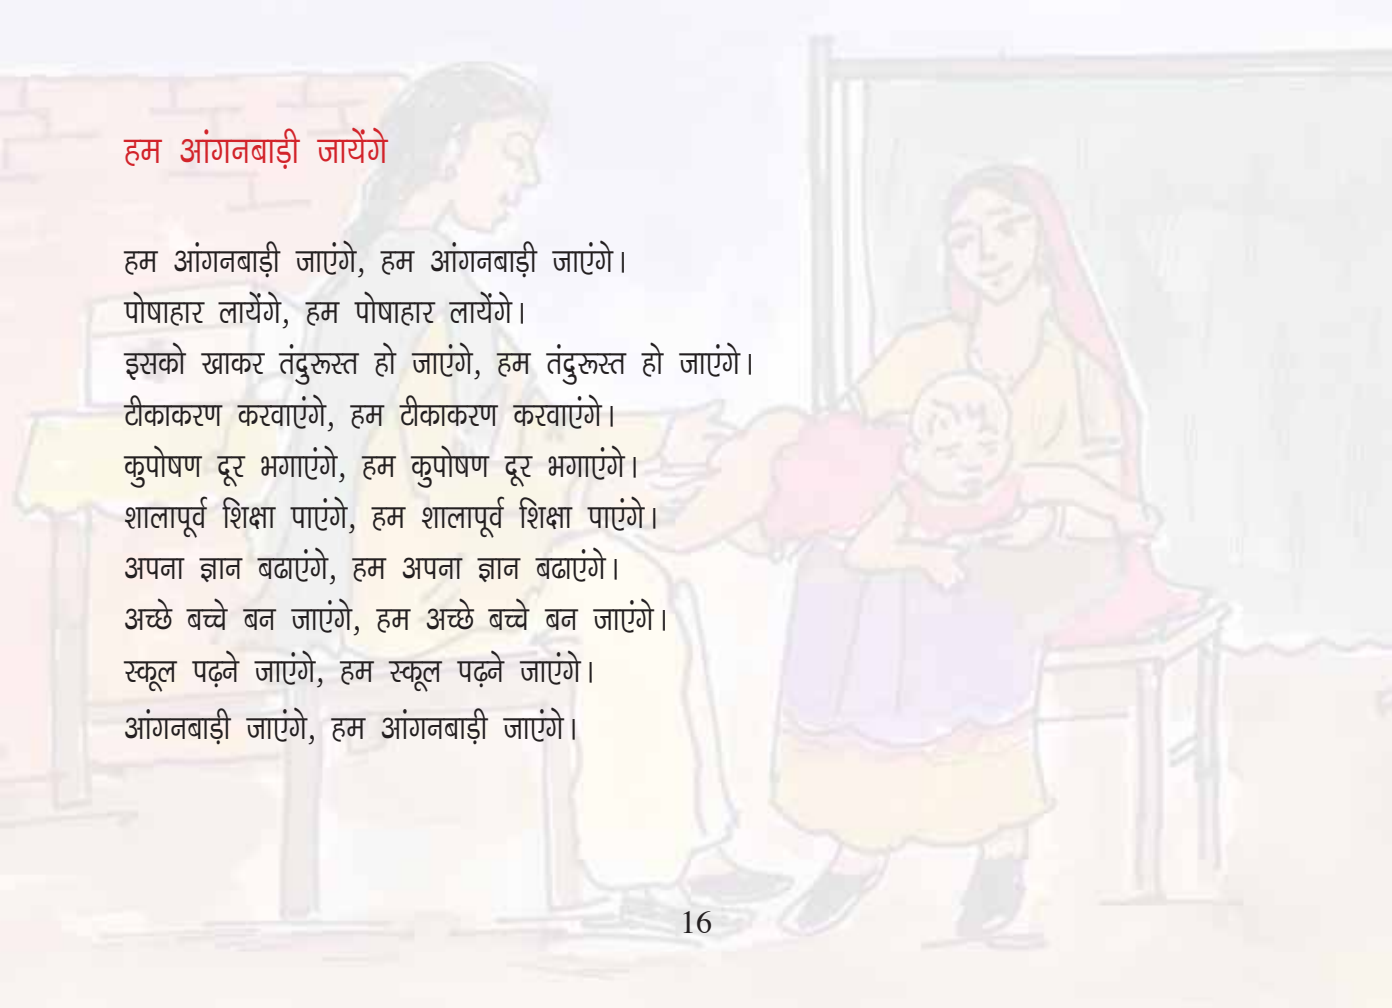 हम आंगनबाड़ी जायेंगे
हम आंगनबाड़ी जाएंगे, हम आंगनबाड़ी जाएंगे।
पोषाहार लायेंगे, हम पोषाहार लायेंगे।
इसको खाकर तंदुरूस्त हो जाएंगे, हम तंदुरूस्त हो जाएंगे।
टीकाकरण करवाएंगे, हम टीकाकरण करवाएंगे।
कुपोषण दूर भगाएंगे, हम कुपोषण दूर भगाएंगे।
शालापूर्व शिक्षा पाएंगे, हम शालापूर्व शिक्षा पाएंगे।
अपना ज्ञान बढाएंगे, हम अपना ज्ञान बढाएंगे।
अच्छे बच्चे बन जाएंगे, हम अच्छे बच्चे बन जाएंगे।
स्कूल पढ़ने जाएंगे, हम स्कूल पढ़ने जाएंगे।
आंगनबाड़ी जाएंगे, हम आंगनबाड़ी जाएंगे।
16